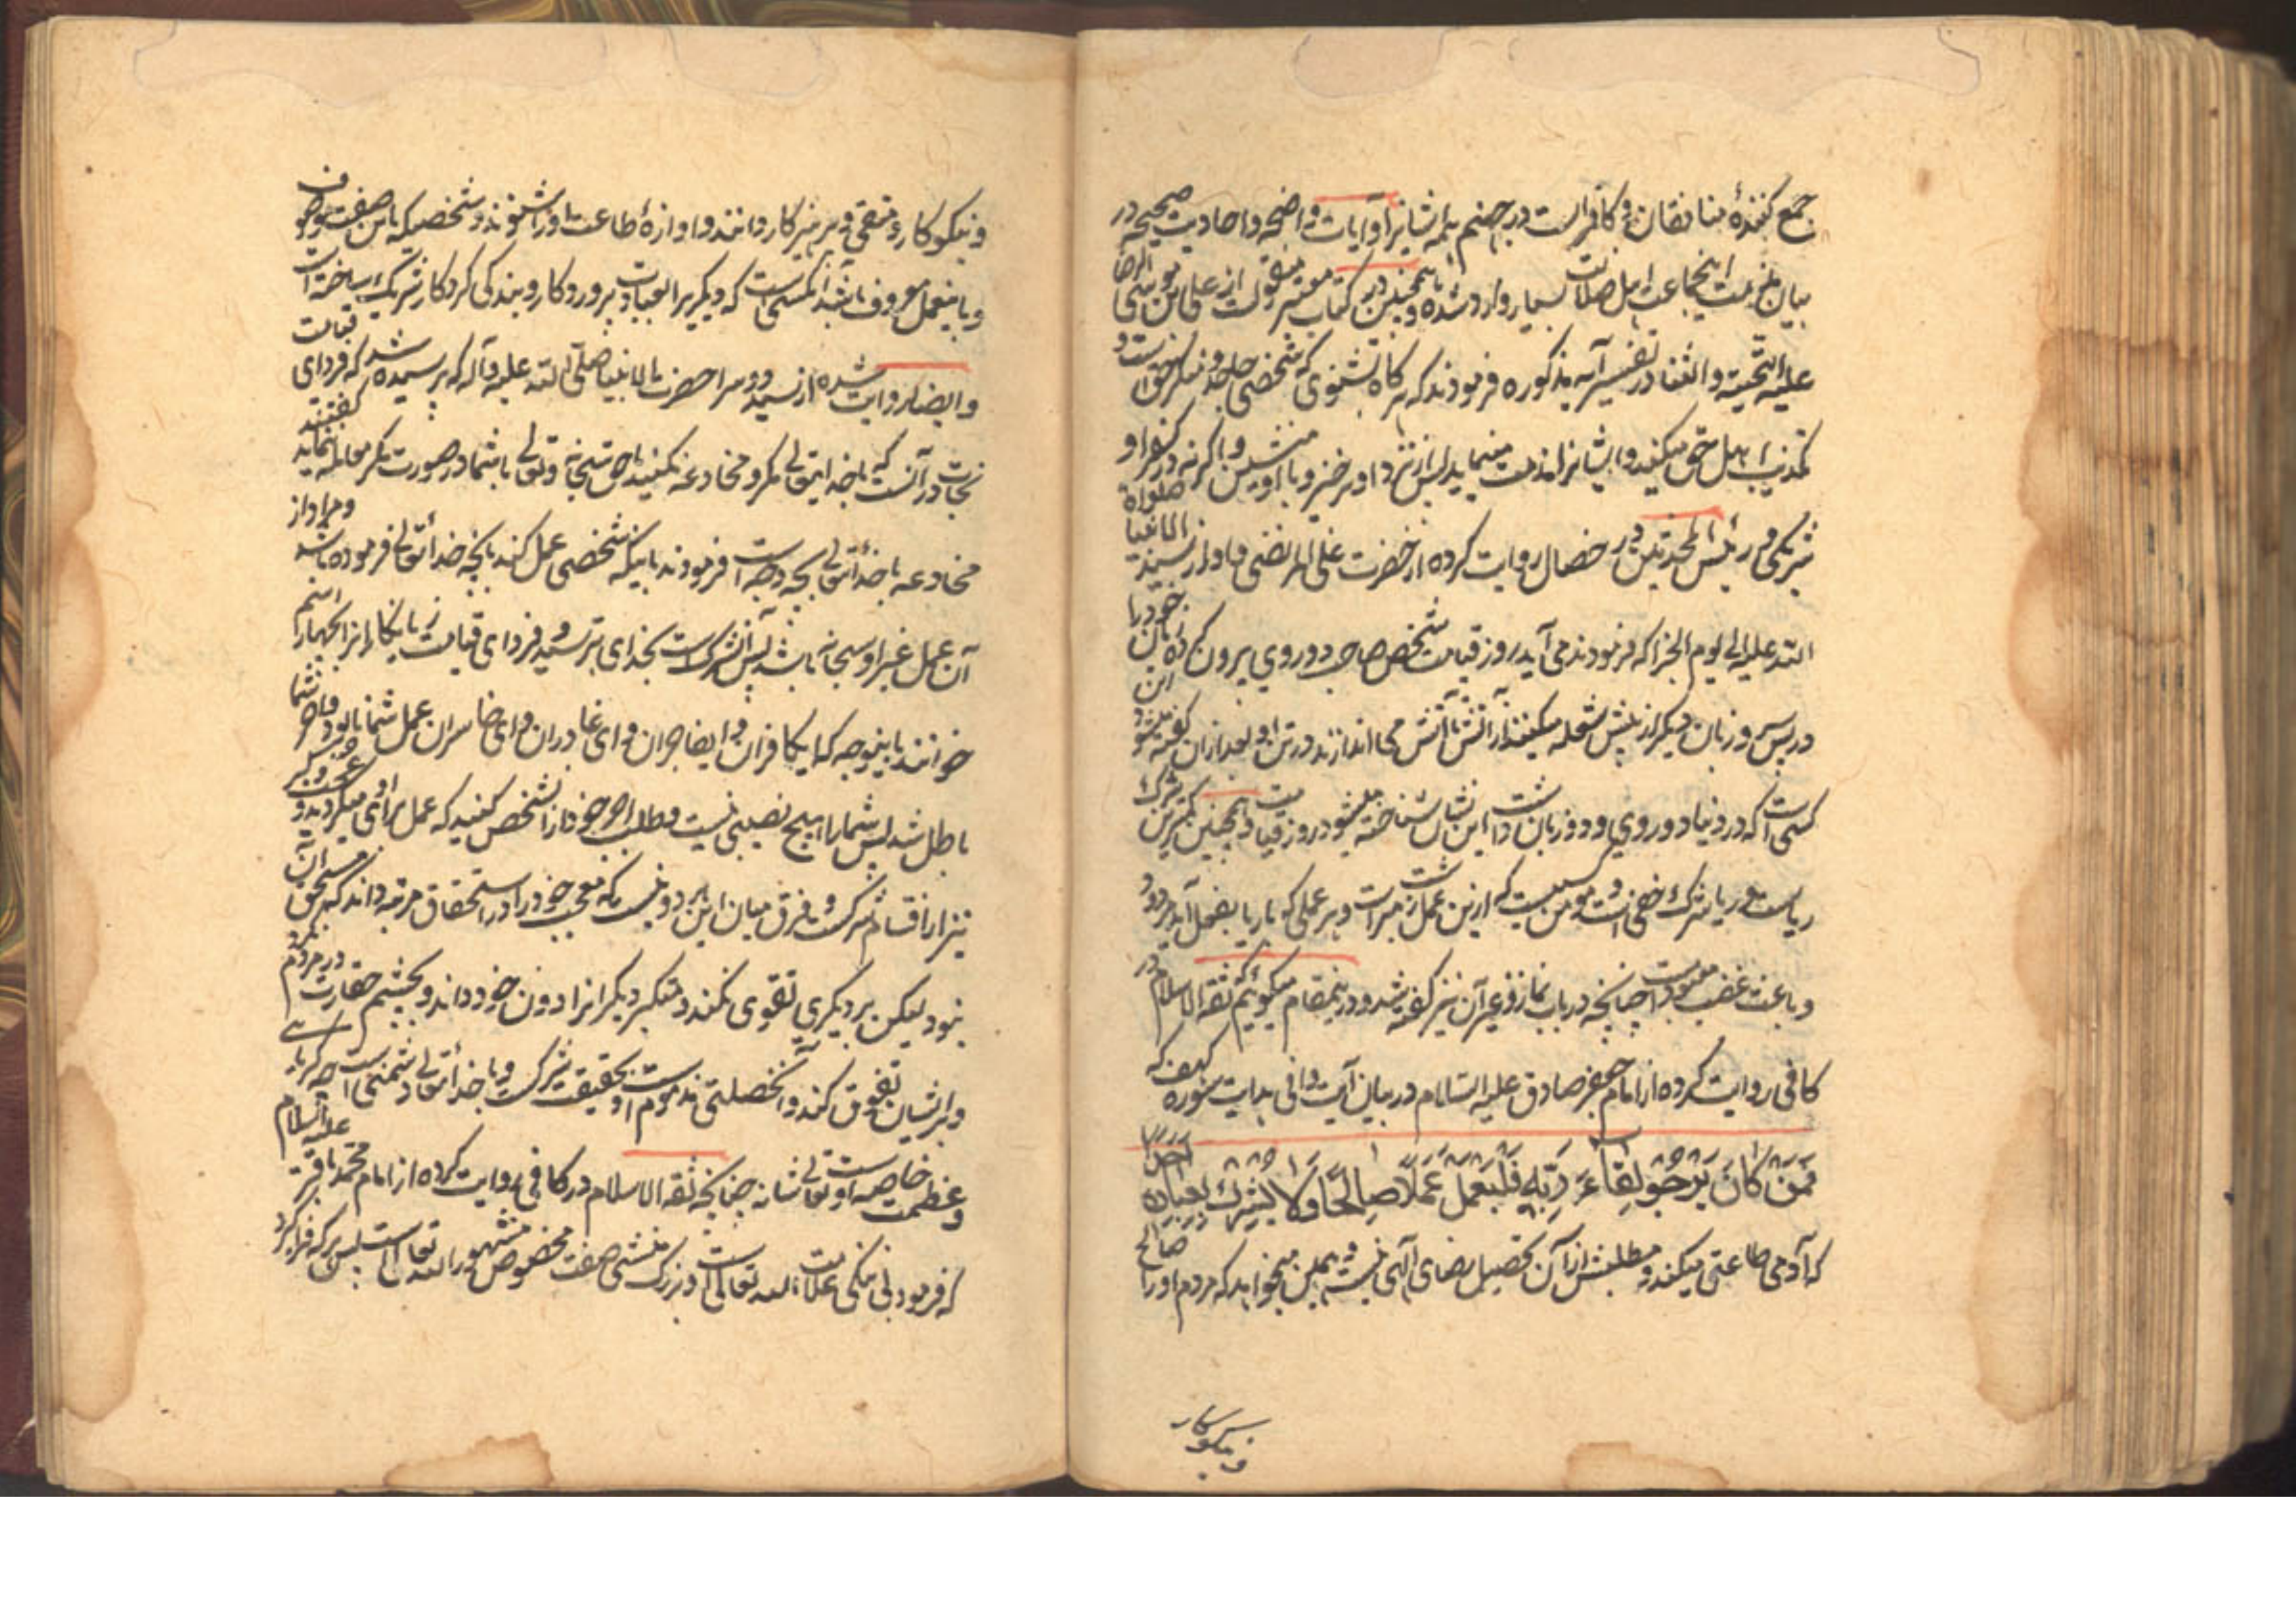 جمع کنندهٔ منافقان و کافرانست در جهنم همه ایشانرا و آیات واضحه و احادیث صحیحه در
بیان مذمت اینجماعت اهل ضلالت بسیار وارد شده و همچنین در کتاب معتبر منقولست از علی بن موسی الرضا
علیه التحیة و الثنا در تفسیر آیه مذکوره فرمودند که هرگاه بشنوی که شخصی جاحد و منکر حق است و
تکذیب اهل حق میکند و ایشانرا مذمت مینماید پس از نزد او برخیز و با او منشین و اگرنه در کفر او
شریکی و رئیس المحدثین در خصال روایت کرده از حضرت علی المرتضی و اولاد سید الانبیا صلواة
الله علیه الی یوم الجزا که فرمودند می آید روز قیامت شخص صاحب دو روی بیرون کرده زبان خود را
در پس و زبان دیگر از پیش شعله میکشند از آتش تا آتش می اندازند در تن او بعد از آن گفته میشود این
کسی است که در دنیا دو روی و دو زبان داشت این نشان شناخته میشود روز قیامت و همچنین بدترین شرک
ریاست و ریا شرک خفی است و مومن کسیست که ازین عمل زشت مبراست و هر عملی که با ریا بفعل آید مردود
و باعث غضب معبود است چنانچه در باب نماز و غیر آن نیز گفته شد و در اینمقام میگوئیم که ثقة الاسلام در
کافی روایت کرده از امام جعفر صادق علیه السلام در بیان آیت وافی هدایت سوره کهف که
فَمَنْ كَانَ يَرْجُو لِقَاءَ رَبِّهِ فَلْيَعْمَلْ عَمَلًا صَالِحًا وَلَا يُشْرِكْ بِعِبَادَةِ رَبِّهِ أَحَدًا
که آدمی طاعتی میکند و مطلبش از آن تحصیل رضای الهی نیست و همین میخواهد که مردم او را صالح
و نیکوکار
و نیکوکار و متقی و پرهیزکار دانند و اوازهٔ طاعت او را شنوند و شخصیکه باین صفت موصوف
و باینعمل معروف باشد آنکسی است که دیگریرا بعبادت پروردگار و بندکی کردگار شریک ساخته است
و ایضا روایت شده از سید دو سرا حضرت خاتم الانبیا صلی الله علیه و آله که پرسیده شد که فردای قیامت
نجات در چیست گفتند در آنست که با خدایتعالی مکر و مخادعه نکنید تا حق سبحانه و تعالی با شما در صورت مکر معامله ننماید
مخادعه با خدایتعالی بچه وجه است فرمودند باینکه شخصی عمل کند بآنچه خدایتعالی فرموده باشد و مراد از
آن عمل غیر او سبحانه باشد پس آن شرکست بخدای بترسید و فردای قیامت ریاکارانرا بچهار اسم
خوانند باینوجه که ای کافران و ای فاجران و ای غادران و ای خاسران عمل شما نابود و اجر شما
باطل شد پس شمارا هیچ نصیبی نیست و طلب اجر خود از آن شخص کنید که عمل برای او میکردید و عجب و تکبر
نیز از اقسام شرکست و فرق میان این هر دو نیست که معجب خود را در استحقاق مرتبه داند که مستحق آن
نبود لیکن بر دیگری تفوق نکند و متکبر دیگرانرا دون خود داند و بچشم حقارت در مردم نگرد
و بر ایشان تفوق کند و آنخصلتی مذموم است و بحقیقت شرکست و با خدایتعالی دشمنی است چه کبریا
و عظمت خاصه اوست تعالی شانه چنانچه ثقة الاسلام در کافی روایت کرده از امام محمد باقر علیه السلام
که فرمود